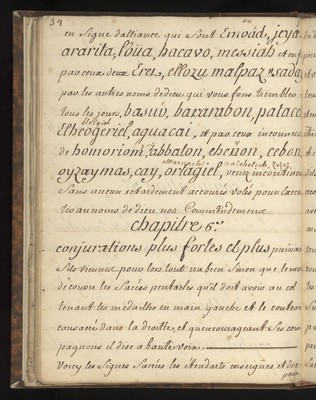 34
en signe dalliance qui sont Einoäd, jeya
ararita, löiia, hacavo, messiah et enf
par ceux deux Eret, ellozu malpaz et saday
par les autres noms de dieu qui vous font trembler
tous les jours, basuo, bararabon, patace
Elheogeriel, aguacai, et par ceux inconnus
de homoriom, abbaton, eheüon, cebon
oyzaymas, cay, orlagiel, venez incontinen
sans aucun retardement accourés volés pour Executer
au noms de dieu nos Commendemens
chapitre 6e.
conjurations plus fortes et plus puissan
Sils viennent pour lors tout va bien Sinon que le
decouvre les Sacrés pentacles qu'il doit avoir au col
tenant les medailles en main gauche et le couteau
consacré dans la droitte, et quencourageant Ses com
pagnons il dise a haute voix.
Voicy les Signes Sacrés les étendarts enseignes et